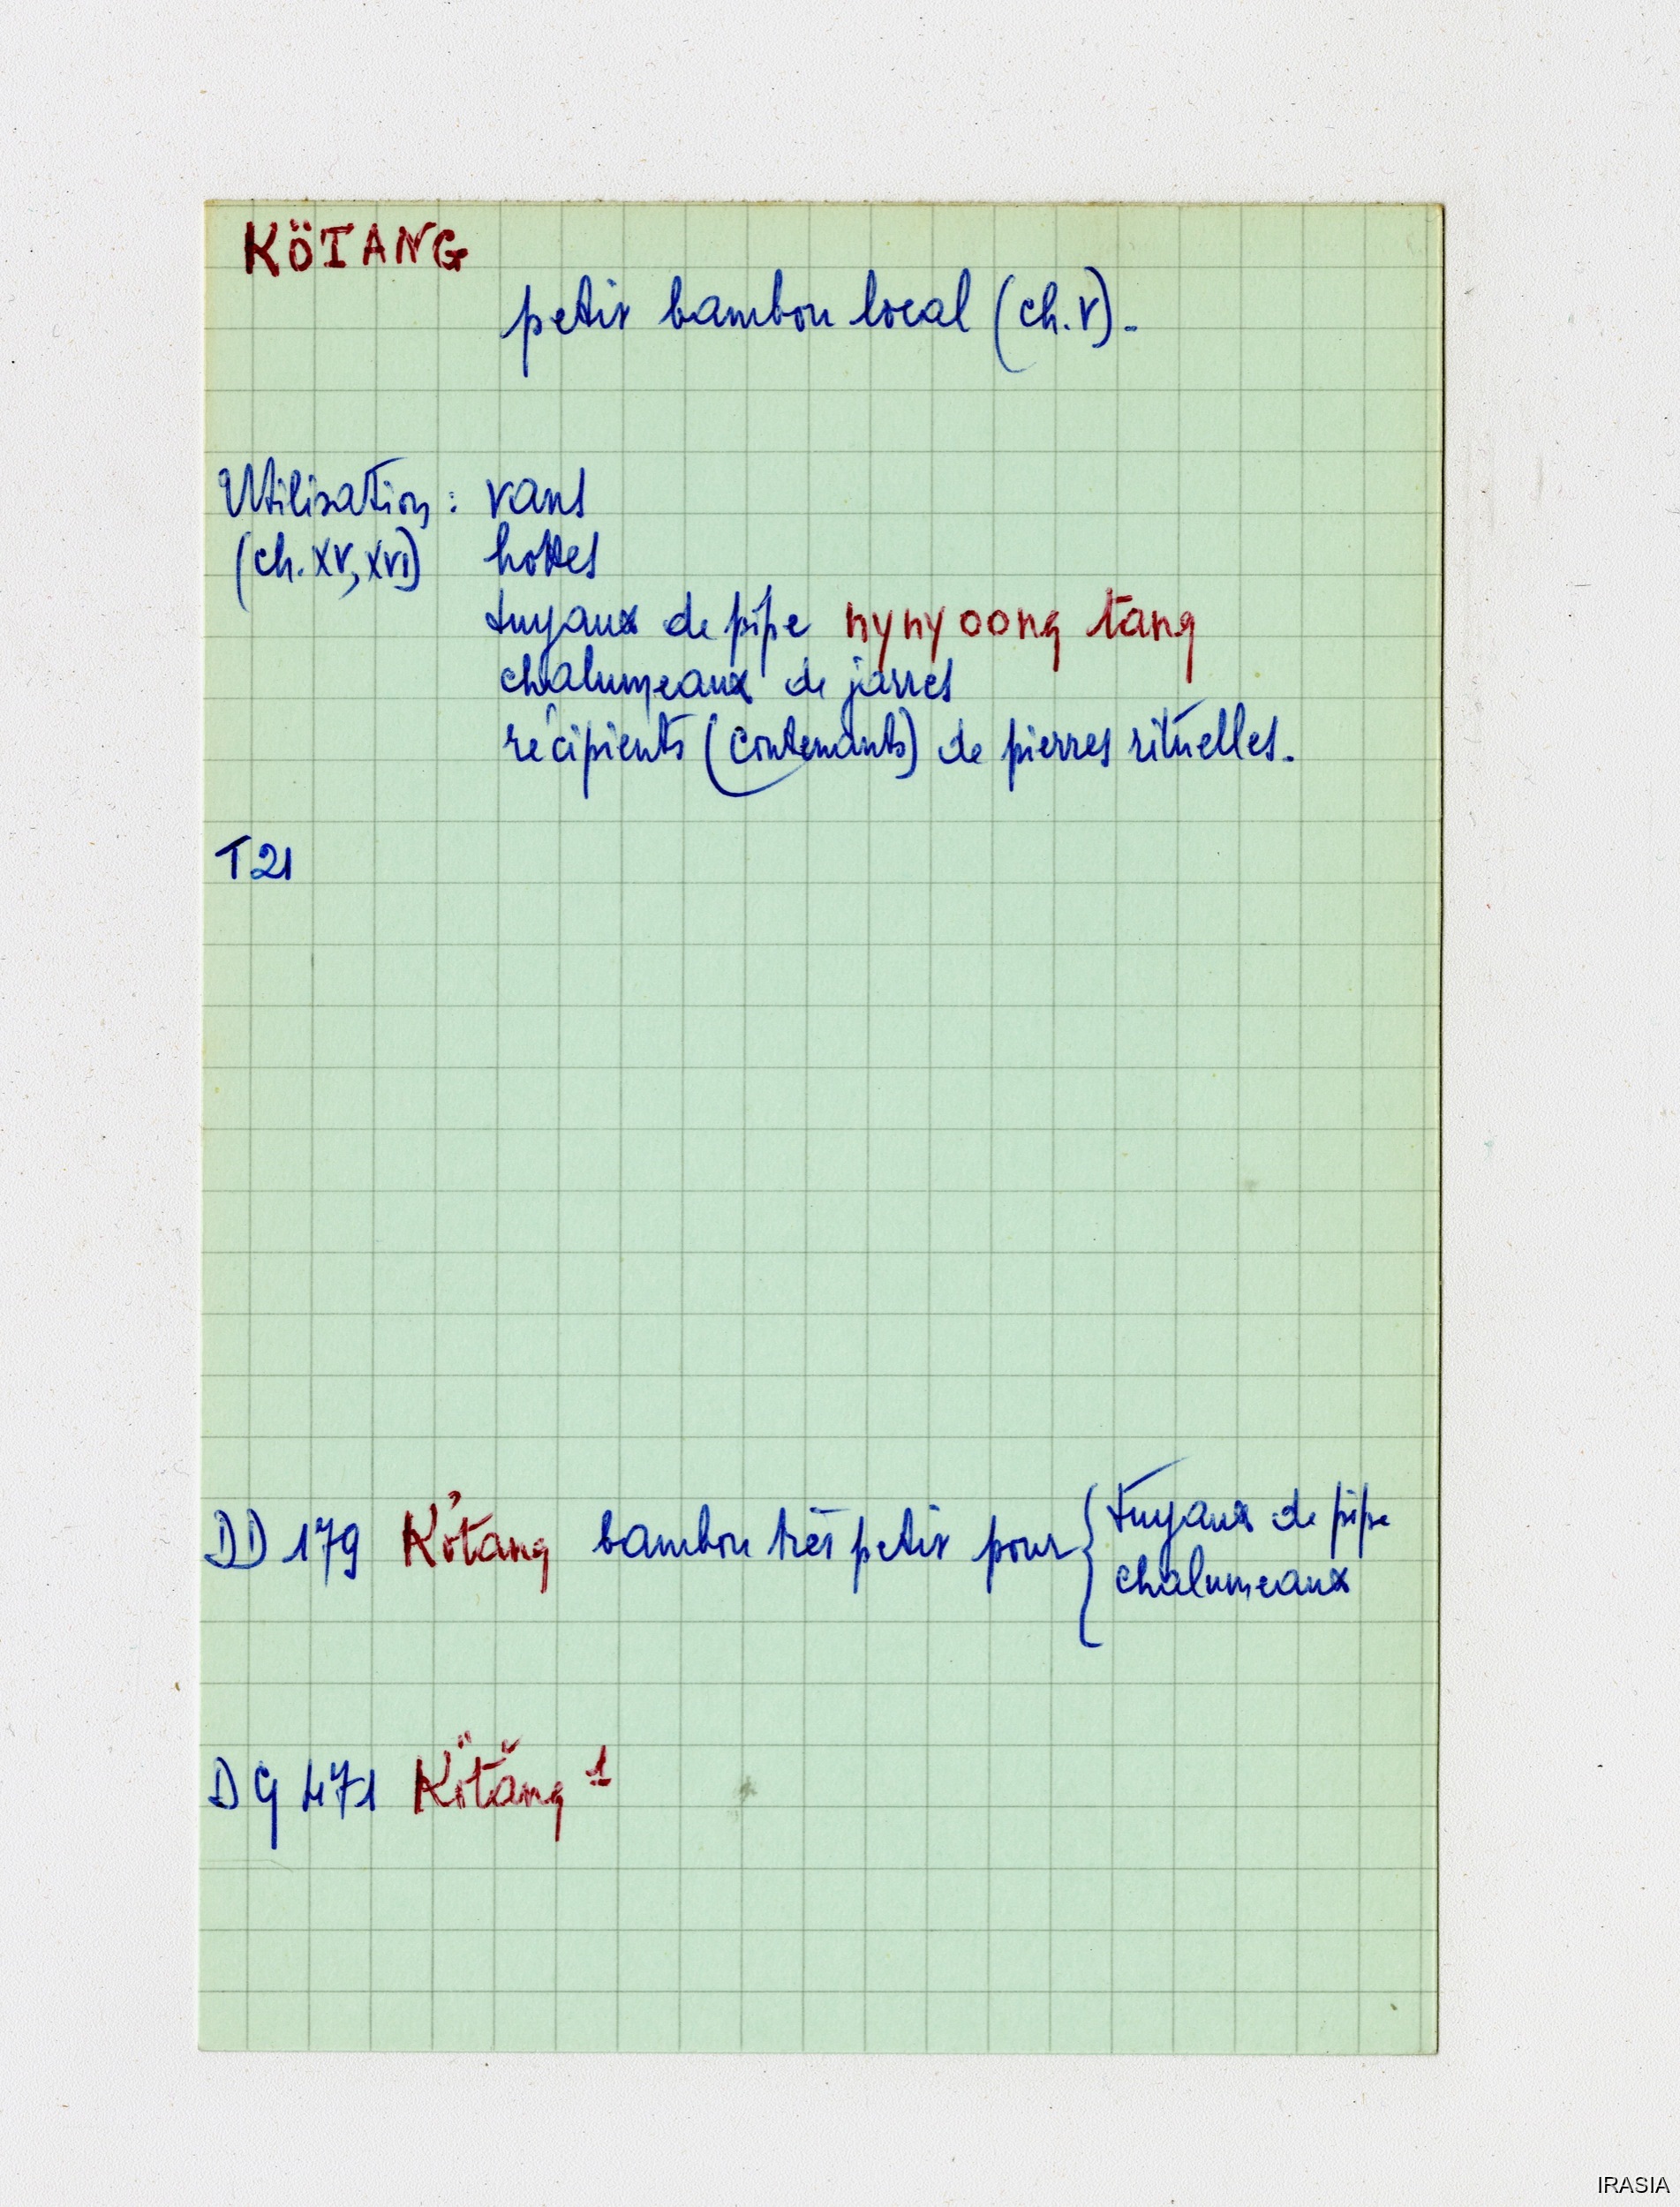 KÖTANG
petit bambou local (ch. V).
Utilisation : vans
(ch. XV, XVI) hottes
tuyaux de pipe nynyoong tang
chalumeaux de jarres
récipients (contenants) de pierres rituelles.
T 21
DD 179 Kơtang bambou très petit pour { tuyaux de pipe
chalumeaux
DG 471 Kötăng 1
IRASIA